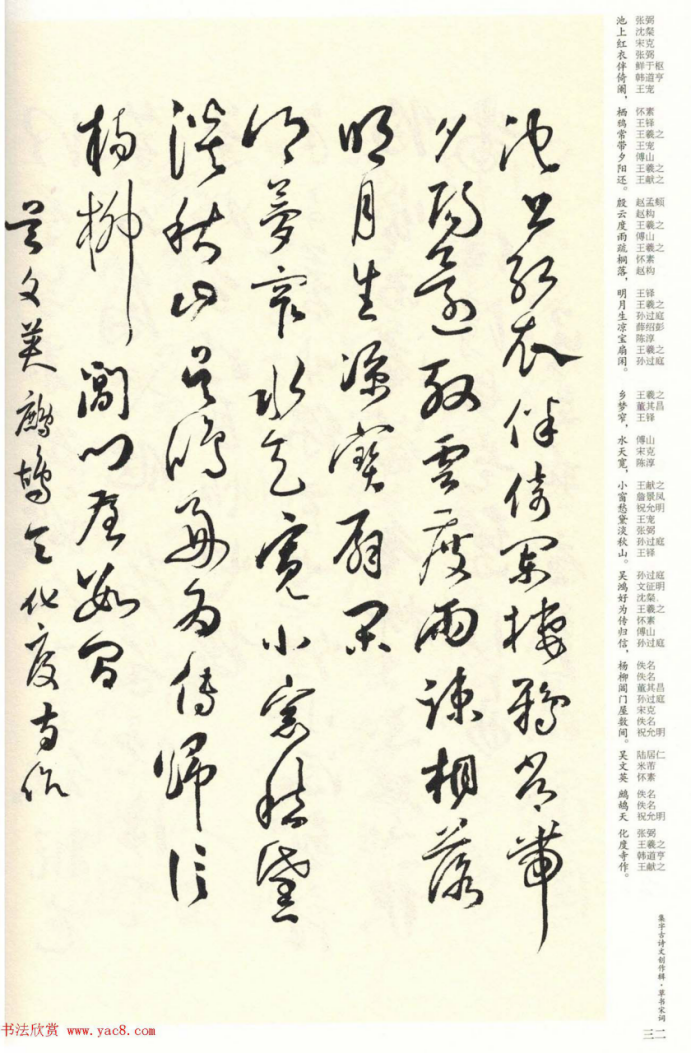 池上紅衣伴倚闌棲鴉常帶
夕陽還殷雲度雨疎桐落
明月生涼寶扇閑
鄉夢窄水天寬小窗愁黛
淡秋山吳鴻好為傳歸信
楊柳閶門屋數間
吳文英鷓鴣天化度寺作
池上红衣伴倚阑，
张弼 沈粲 宋克 张弼 鲜于枢 韩道亨 王宠
栖鸦常带夕阳还。
怀素 王铎 王羲之 王宠 傅山 王羲之 王献之
殷云度雨疏桐落，
赵孟頫 赵构 王羲之 傅山 王羲之 怀素 赵构
明月生凉宝扇闲。
王铎 王羲之 孙过庭 薛绍彭 陈淳 王羲之 孙过庭
乡梦窄，
王羲之 董其昌 王铎
水天宽，
傅山 宋克 陈淳
小窗愁黛淡秋山。
王献之 詹景凤 祝允明 王宠 张弼 孙过庭 王铎
吴鸿好为传归信，
孙过庭 文征明 沈粲 王羲之 怀素 傅山 孙过庭
杨柳阊门屋数间。
佚名 佚名 董其昌 孙过庭 宋克 佚名 祝允明
吴文英
陆居仁 米芾 怀素
鹧鸪天
佚名 佚名 祝允明
化度寺作。
张弼 王羲之 韩道亨 王献之
集字古诗文创作辑·草书宋词
三二
书法欣赏 www.yac8.com